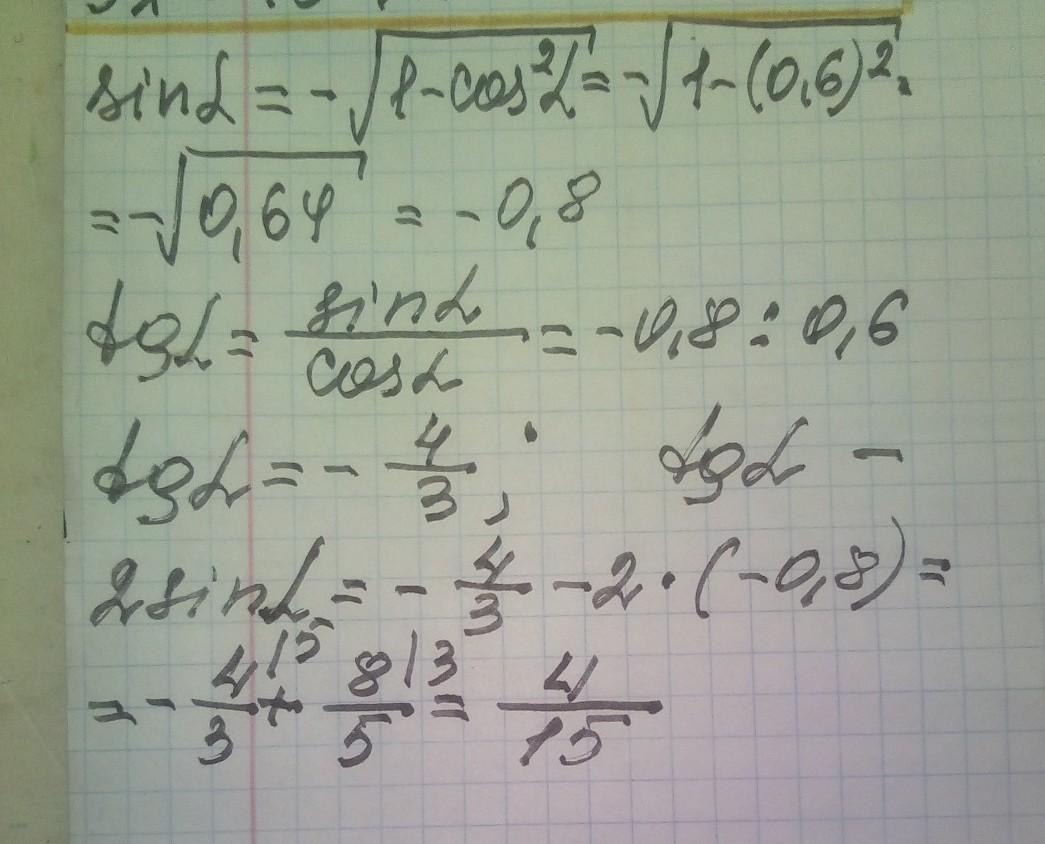 sinα = -√(1-cos²α) = -√(1-(0,6)².
= -√0,64 = -0,8
tgα = sinα/cosα = -0,8 : 0,6
tgα = - 4/3, tgα -
2sinα = - 4/3 - 2·(-0,8) =
= - 4/3 |5 + 8/5 |3 = 4/15